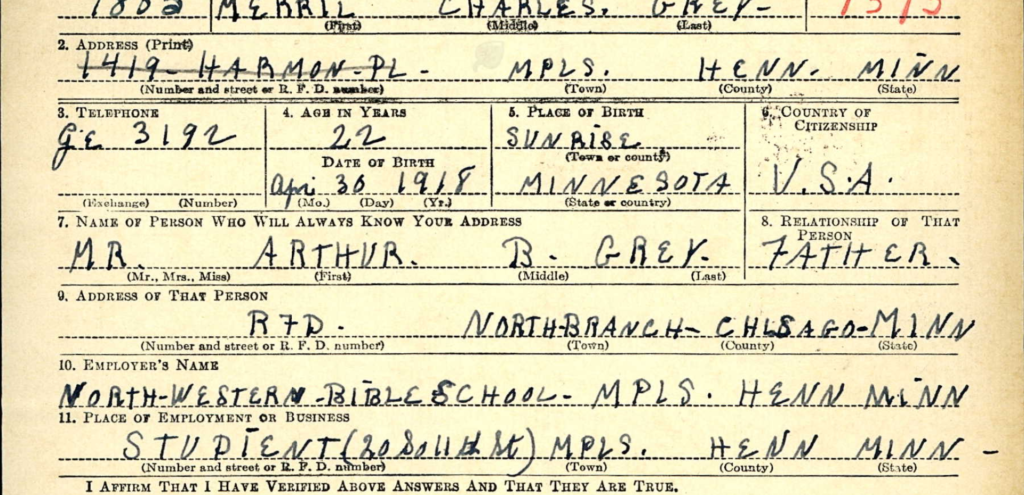 MERRIL CHARLES. GREY-
(First) (Middle) (Last)
2. ADDRESS (Print)
1419- HARMON-PL- MPLS. HENN. MINN
(Number and street or R. F. D. number) (Town) (County) (State)
3. TELEPHONE 4. AGE IN YEARS 5. PLACE OF BIRTH 6. COUNTRY OF CITIZENSHIP
GE 3192 22 SUNRISE
(Town or county)
DATE OF BIRTH
Apr 30 1918 MINNESOTA U.S.A.
(Exchange) (Number) (Mo.) (Day) (Yr.) (State or country)
7. NAME OF PERSON WHO WILL ALWAYS KNOW YOUR ADDRESS 8. RELATIONSHIP OF THAT PERSON
MR. ARTHUR. B. GREY. FATHER.
(Mr., Mrs., Miss) (First) (Middle) (Last)
9. ADDRESS OF THAT PERSON
RFD. NORTH-BRANCH- CHISAGO-MINN
(Number and street or R. F. D. number) (Town) (County) (State)
10. EMPLOYER'S NAME
NORTH-WESTERN-BIBLE SCHOOL- MPLS. HENN MINN
11. PLACE OF EMPLOYMENT OR BUSINESS
STUDIENT (20 So 11th St) MPLS. HENN MINN-
(Number and street or R. F. D. number) (Town) (County) (State)
I AFFIRM THAT I HAVE VERIFIED ABOVE ANSWERS AND THAT THEY ARE TRUE.